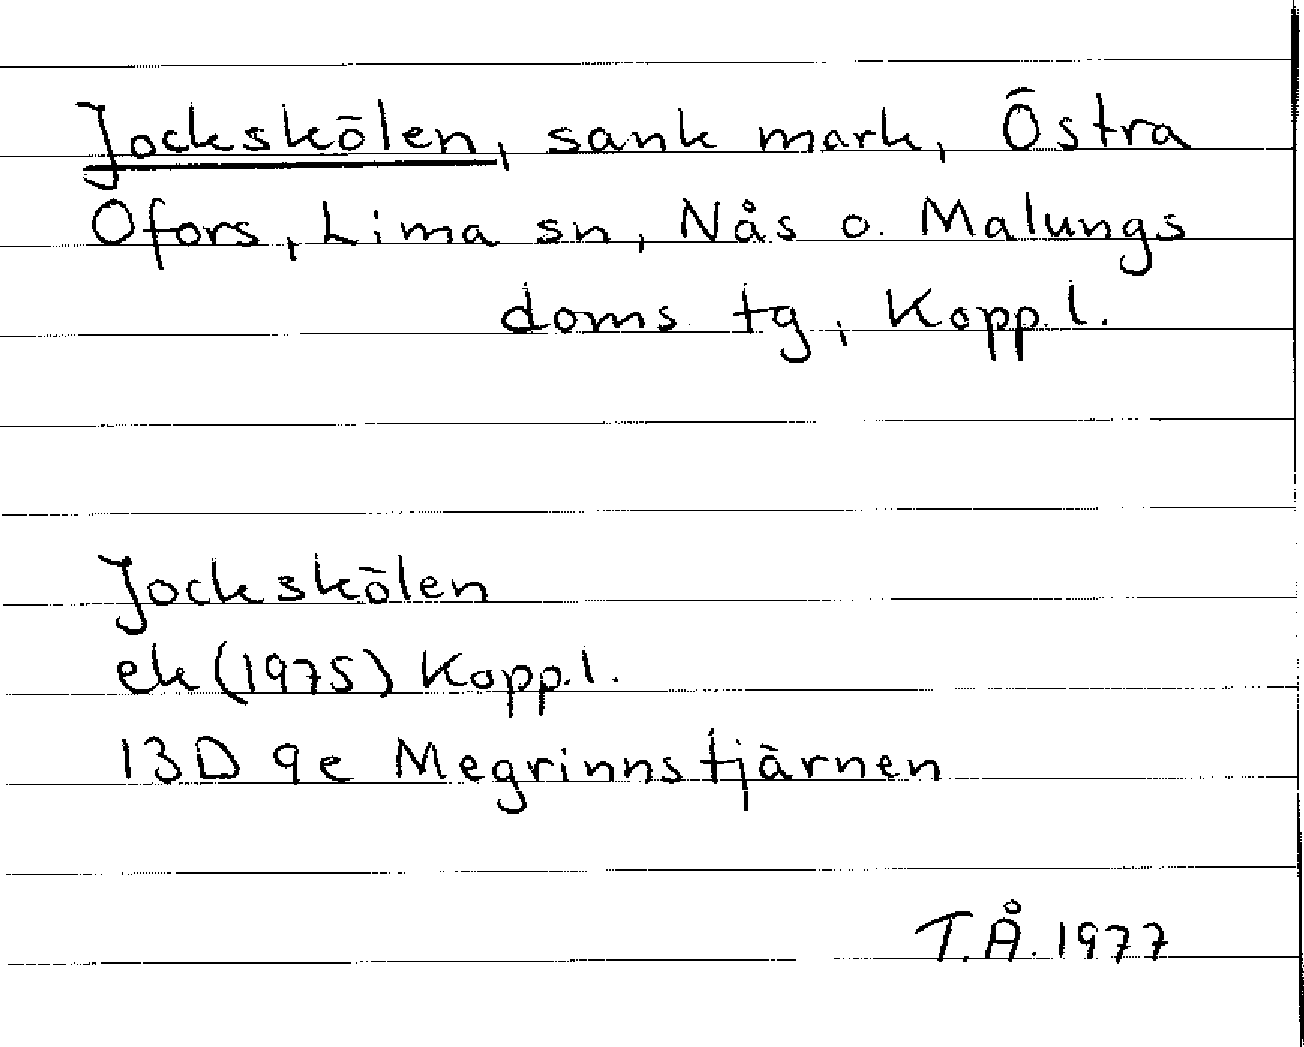 Jockskölen, sank mark, Östra
Ofors, Lima sn, Nås o. Malungs
doms tg, Kopp.l.
Jockskölen
ek (1975) Kopp.l.
13D 9e Megrinnstjärnen
T.Å. 1977